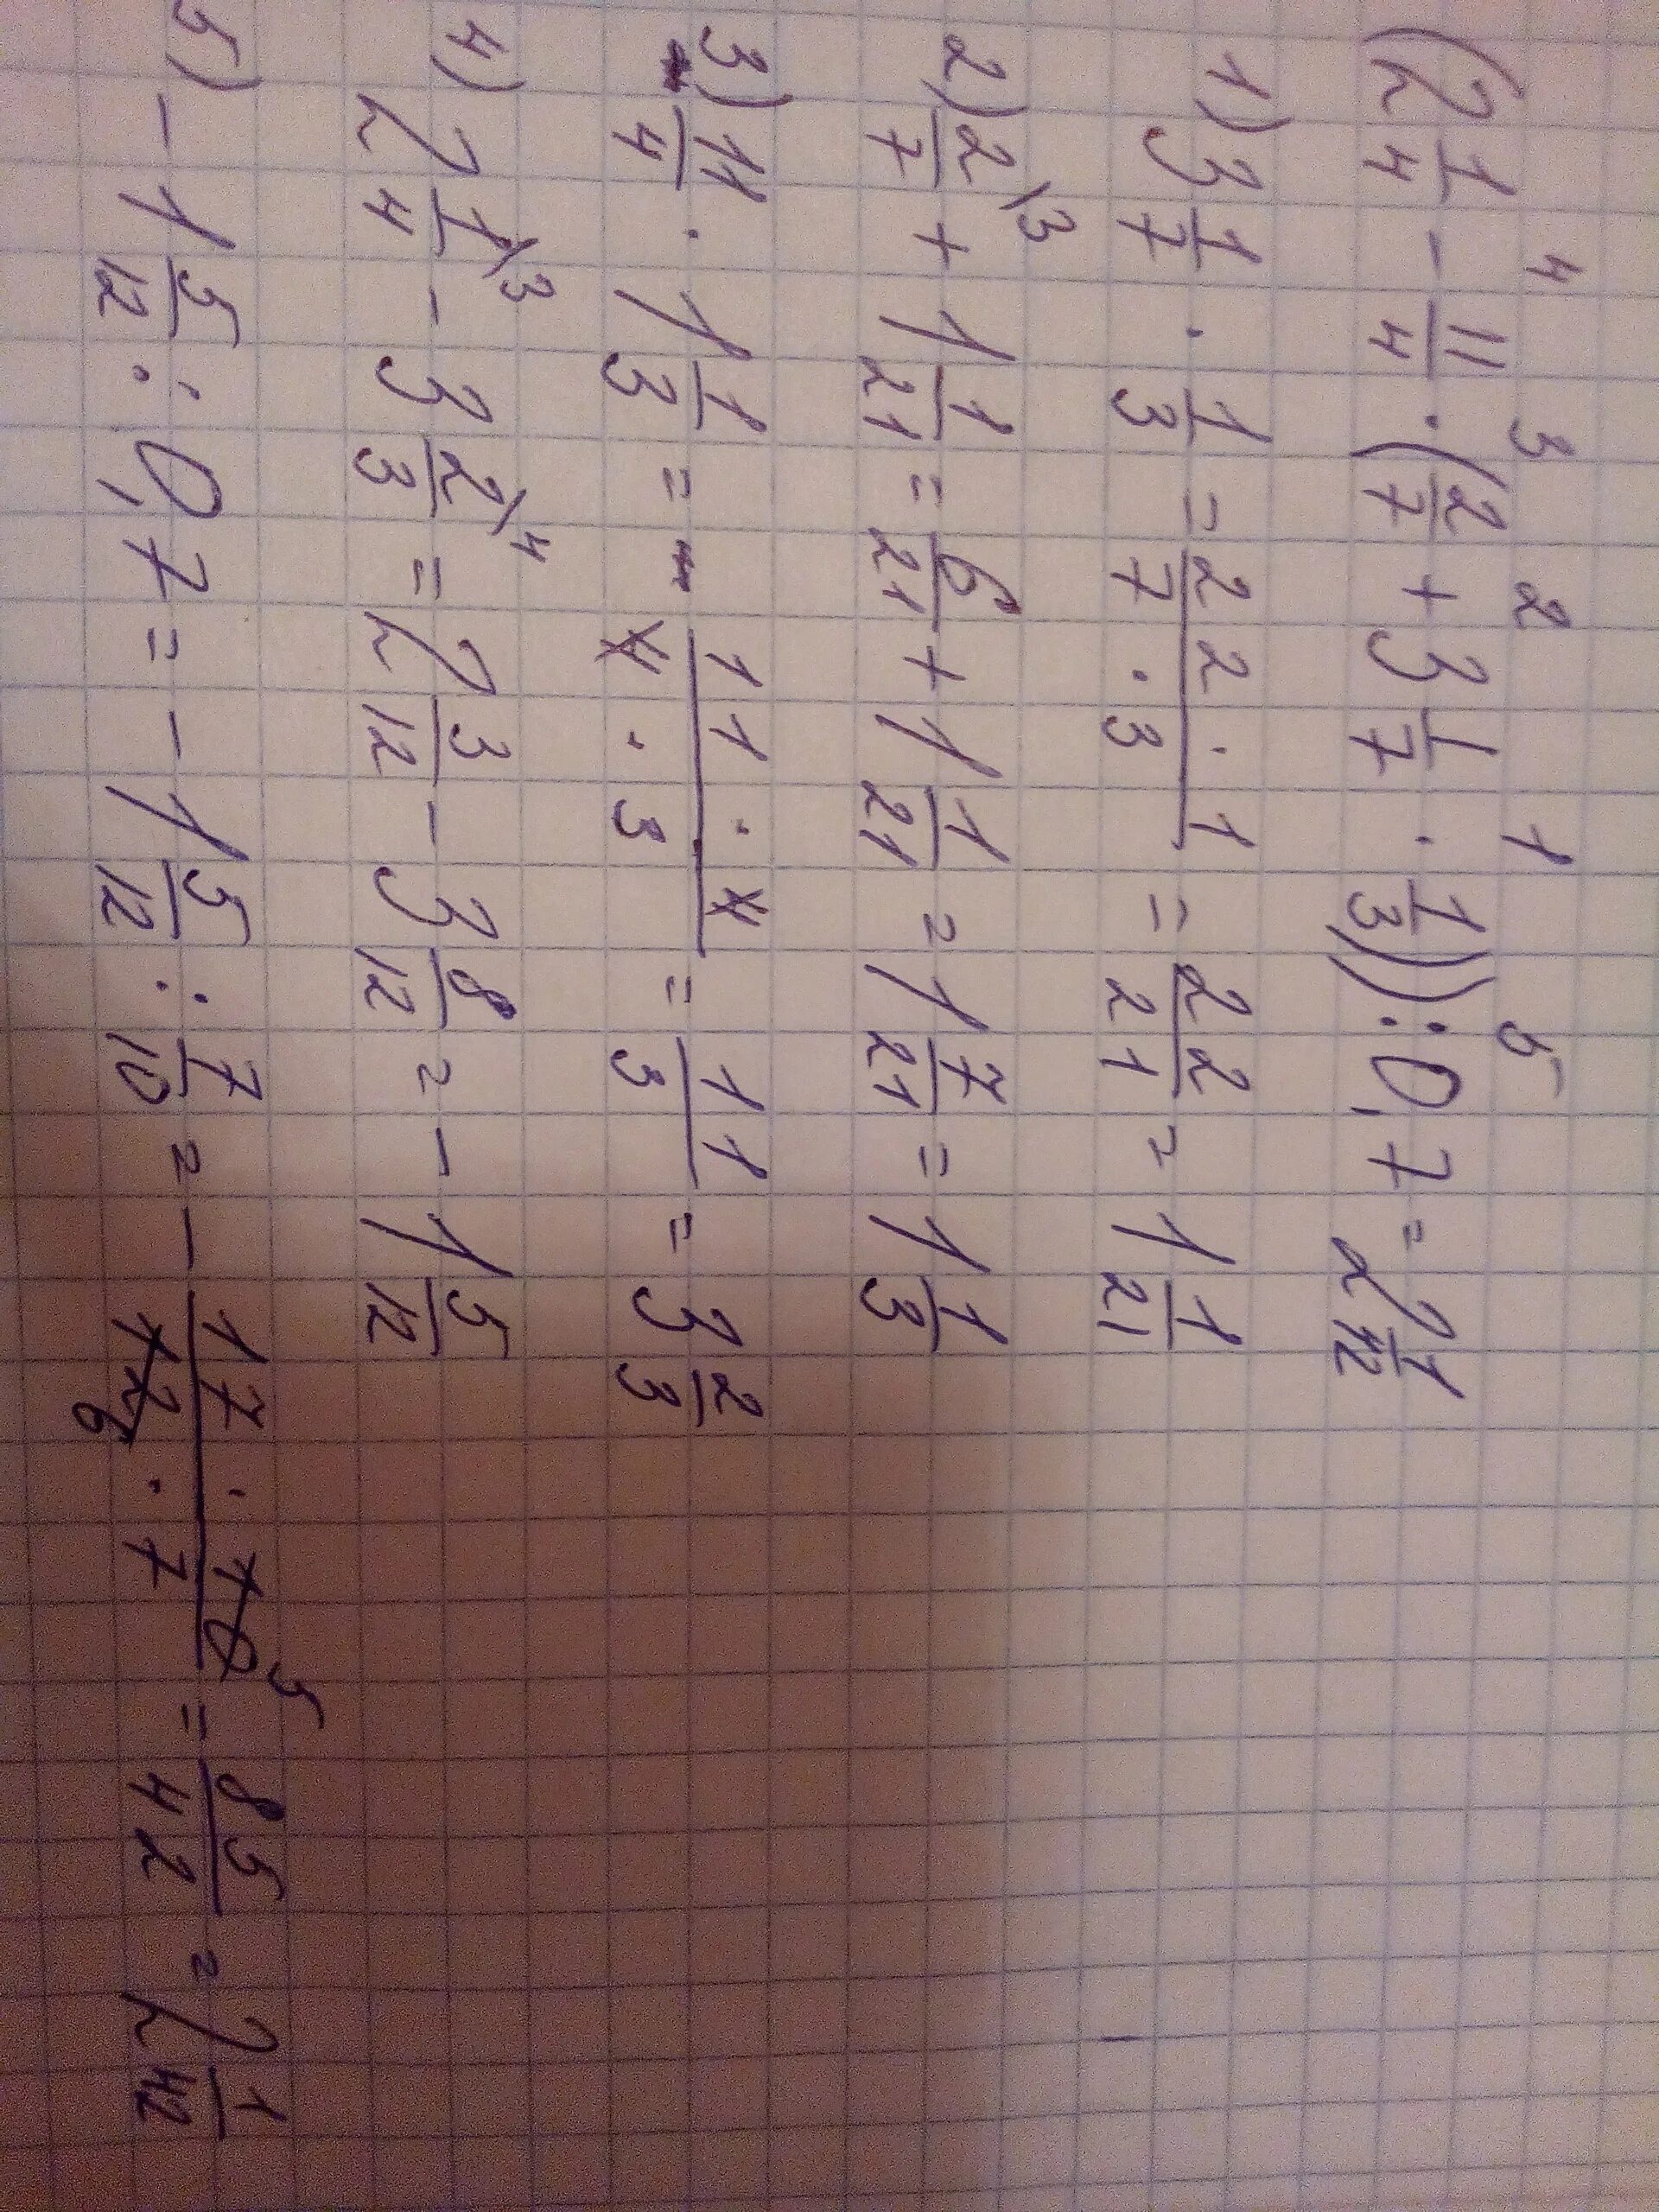 (2 1/4 - 11/4 · (2/7 + 3 1/7 · 1/3)) : 0,7 = 2 1/42
1) 3 1/7 · 1/3 = 22 · 1/7 · 3 = 22/21 = 1 1/21
2) 2/7 \3 + 1 1/21 = 6/21 + 1 1/21 = 1 7/21 = 1 1/3
3) 11/4 · 1 1/3 = 11 · 4/4 · 3 = 11/3 = 3 2/3
4) 2 1/4 \3 - 3 2/3 \4 = 2 3/12 - 3 8/12 = - 1 5/12
5) - 1 5/12 : 0,7 = - 1 5/12 : 7/10 = - 17 · 10 5/12 6 · 7 = 85/42 = 2 1/42